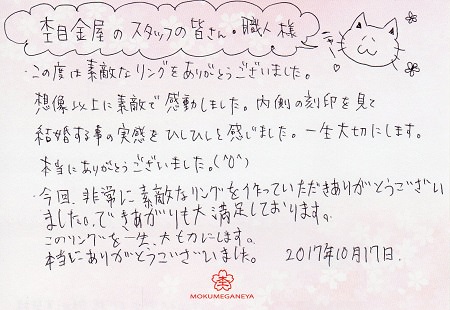 杢目金屋のスタッフの皆さん・職人様
・この度は素敵なリングをありがとうございました。
想像以上に素敵で感動しました。内側の刻印を見て
結婚する事の実感をひしひしと感じました。一生大切にします。
本当にありがとうございました。(^o^)
・今回、非常に素敵なリングを作っていただきありがとうござい
ました。できあがりも大満足しております。
このリングを一生、大切にします。
本当にありがとうございました。 2017年10月17日.
MOKUMEGANEYA